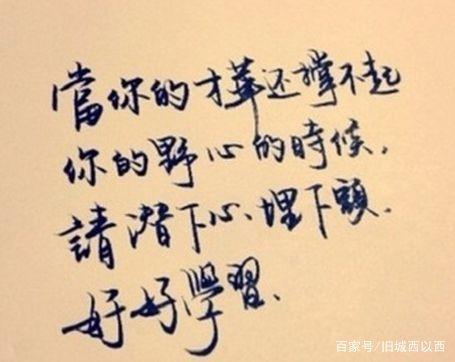 當你的才華还撐不起
你的野心的時候,
請潛下心、埋下頭、
好好學習、
百家号/旧城西以西